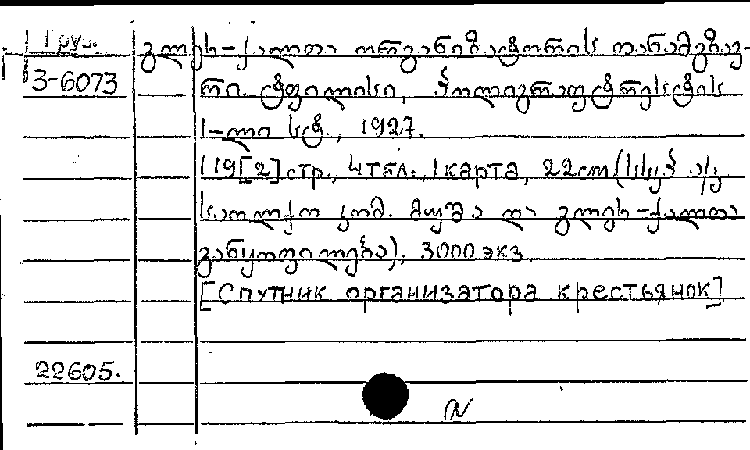 Груз.
3-6073
გლეხ-ქალთა ორგანიზატორის თანამგზავ-
რი. ტფილისი, პოლიგრაფტრესტის
1-ლი სტ., 1927.
119[2] стр., 4 табл., 1 карта, 22 cm (სსრკ ა/კ
საოლქო კომ. მუშა და გლეხ-ქალთა
განყოფილება), 3000 экз.
[Спутник организатора крестьянок]
22605.